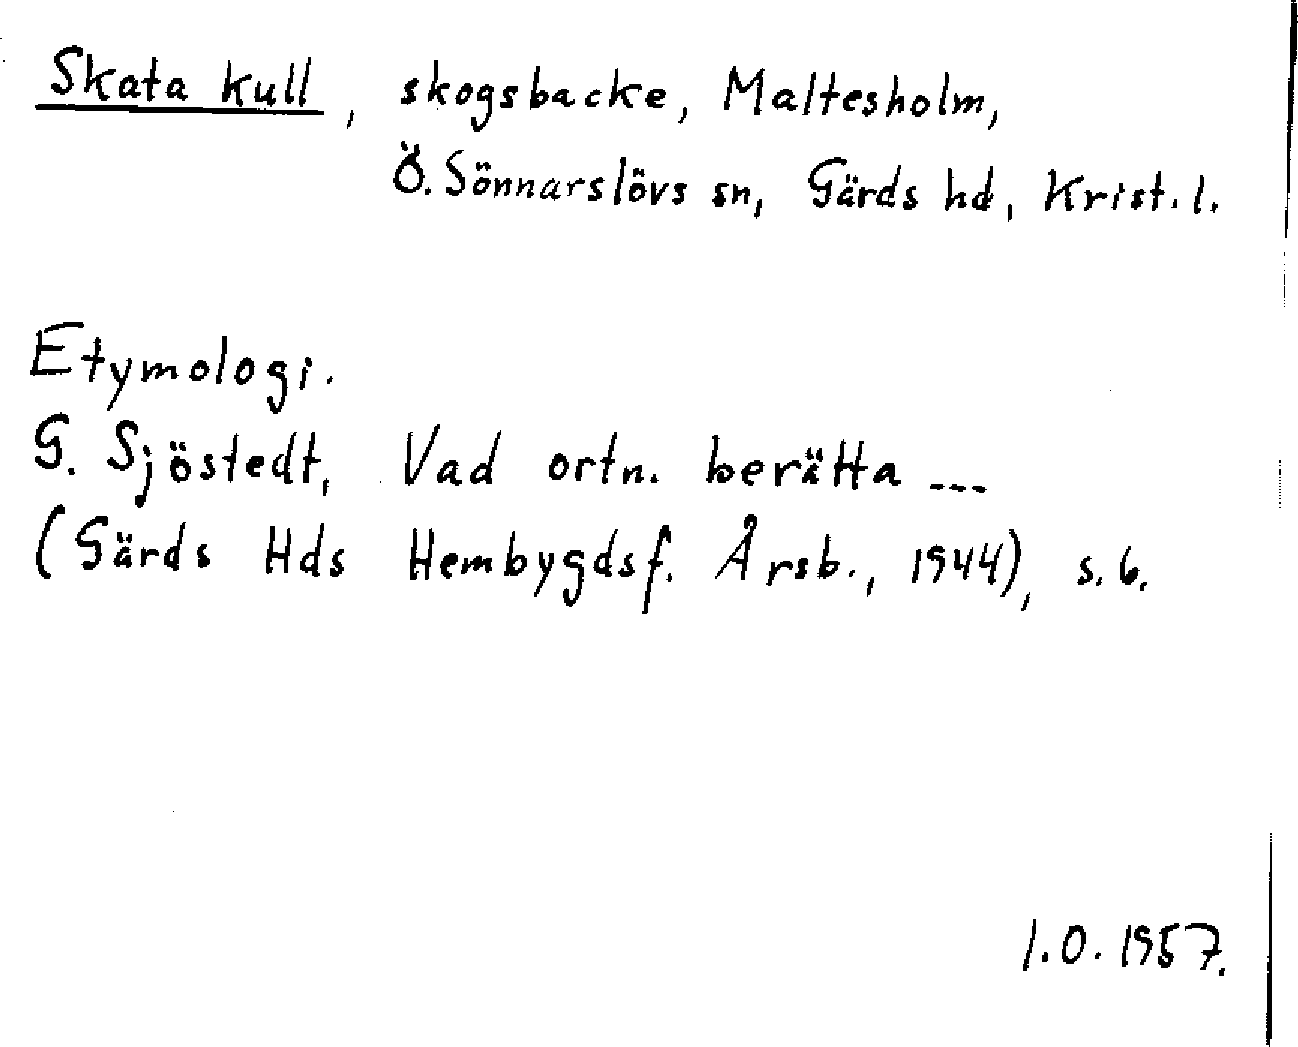 Skata kull, skogsbacke, Maltesholm,
Ö. Sönnarslövs sn, Gärds hd, Krist. l.
Etymologi.
G. Sjöstedt, Vad ortn. berätta ---
(Gärds Hds Hembygdsf. Årsb., 1944), s. 6.
I.O. 1957.